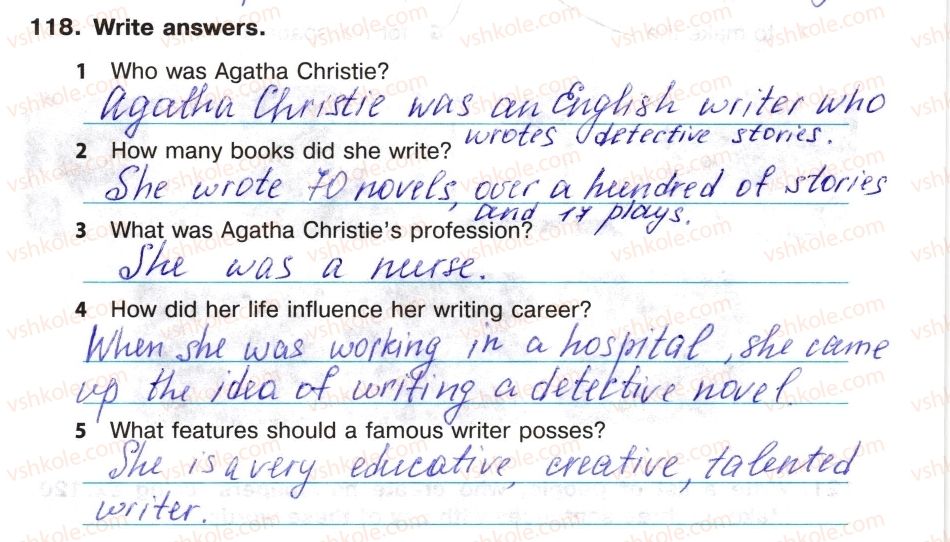 118. Write answers.
1 Who was Agatha Christie?
Agatha Christie was an English writer who
wrotes detective stories.
2 How many books did she write?
She wrote 70 novels, over a hundred of stories
and 17 plays.
3 What was Agatha Christie's profession?
She was a nurse.
4 How did her life influence her writing career?
When she was working in a hospital, she came
up the idea of writing a detective novel.
5 What features should a famous writer posses?
She is a very educative, creative, talented
writer.